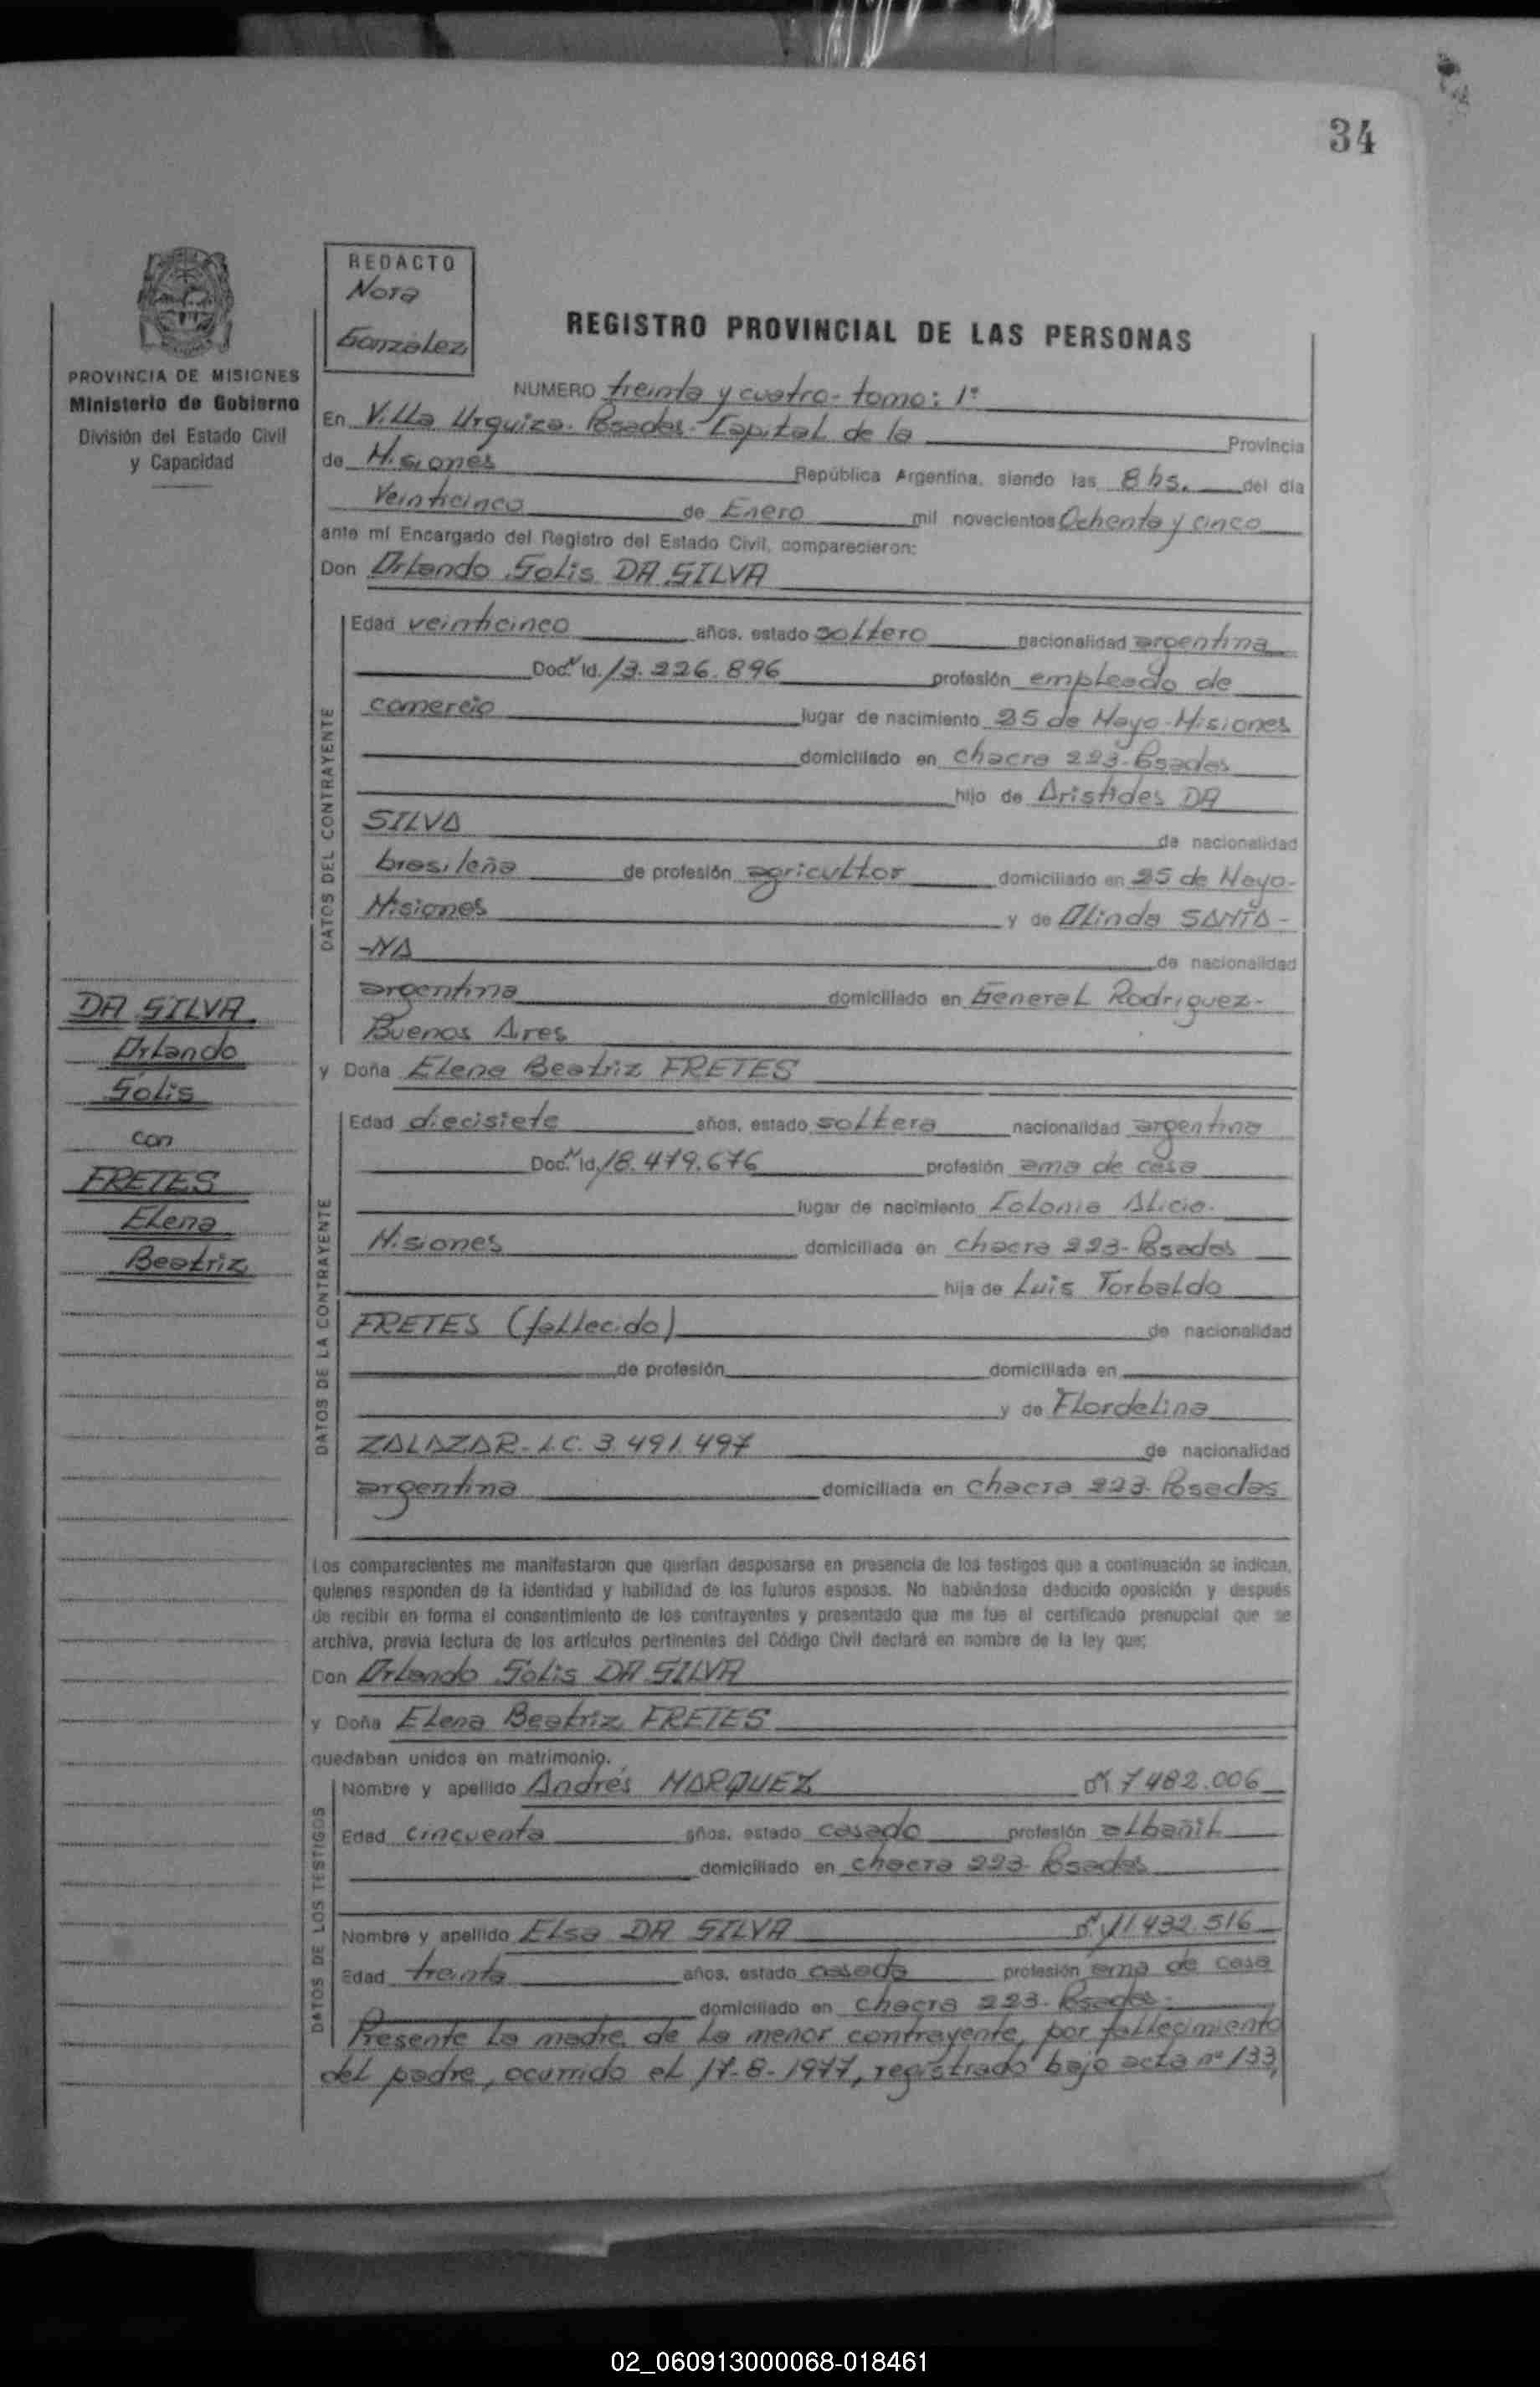 34
REDACTO
Nora
Gonzalez
REGISTRO PROVINCIAL DE LAS PERSONAS
PROVINCIA DE MISIONES
Ministerio de Gobierno
División del Estado Civil
y Capacidad
NUMERO treinta y cuatro - tomo: 1º
En Villa Urquiza - Posadas - Capital de la Provincia
de Misiones República Argentina, siendo las 8 hs. del día
Veinticinco de Enero mil novecientos Ochenta y cinco
ante mí Encargado del Registro del Estado Civil, comparecieron:
Don Orlando Solis DA SILVA
DATOS DEL CONTRAYENTE
Edad veinticinco años, estado soltero nacionalidad argentina
Doc. Id. 13.226.896 profesión empleado de
comercio lugar de nacimiento 25 de Mayo - Misiones
domiciliado en chacra 223 - Posadas
hijo de Aristides DA
SILVA de nacionalidad
brasileña de profesión agricultor domiciliado en 25 de Mayo -
Misiones y de Olinda SANTA -
-NA de nacionalidad
argentina domiciliado en General Rodriguez -
Buenos Aires
y Doña Elena Beatriz FRETES
DA SILVA
Orlando
Solis
con
FRETES
Elena
Beatriz
DATOS DE LA CONTRAYENTE
Edad diecisiete años, estado soltera nacionalidad argentina
Doc. Id. 18.479.676 profesión ama de casa
lugar de nacimiento Colonia Alicia -
Misiones domiciliada en chacra 223 - Posadas
hija de Luis Torbaldo
FRETES (fallecido) de nacionalidad
de profesión domiciliada en
y de Flordelina
ZALAZAR - L.C. 3.491.497 de nacionalidad
argentina domiciliada en chacra 223 - Posadas
Los comparecientes me manifestaron que querían desposarse en presencia de los testigos que a continuación se indican,
quienes responden de la identidad y habilidad de los futuros esposos. No habiéndose deducido oposición y después
de recibir en forma el consentimiento de los contrayentes y presentado que me fue el certificado prenupcial que se
archiva, previa lectura de los artículos pertinentes del Código Civil declaré en nombre de la ley que:
Don Orlando Solis DA SILVA
y Doña Elena Beatriz FRETES
quedaban unidos en matrimonio.
DATOS DE LOS TESTIGOS
Nombre y apellido Andrés MARQUEZ 7.482.006
Edad cincuenta años, estado casado profesión albañil
domiciliado en chacra 223 - Posadas
Nombre y apellido Elsa DA SILVA 11.432.516
Edad treinta años, estado casada profesión ama de casa
domiciliado en chacra 223 - Posadas -
Presente la madre de la menor contrayente, por fallecimiento
del padre, ocurrido el 17-8-1977, registrado bajo acta nº 133,
02_060913000068-018461